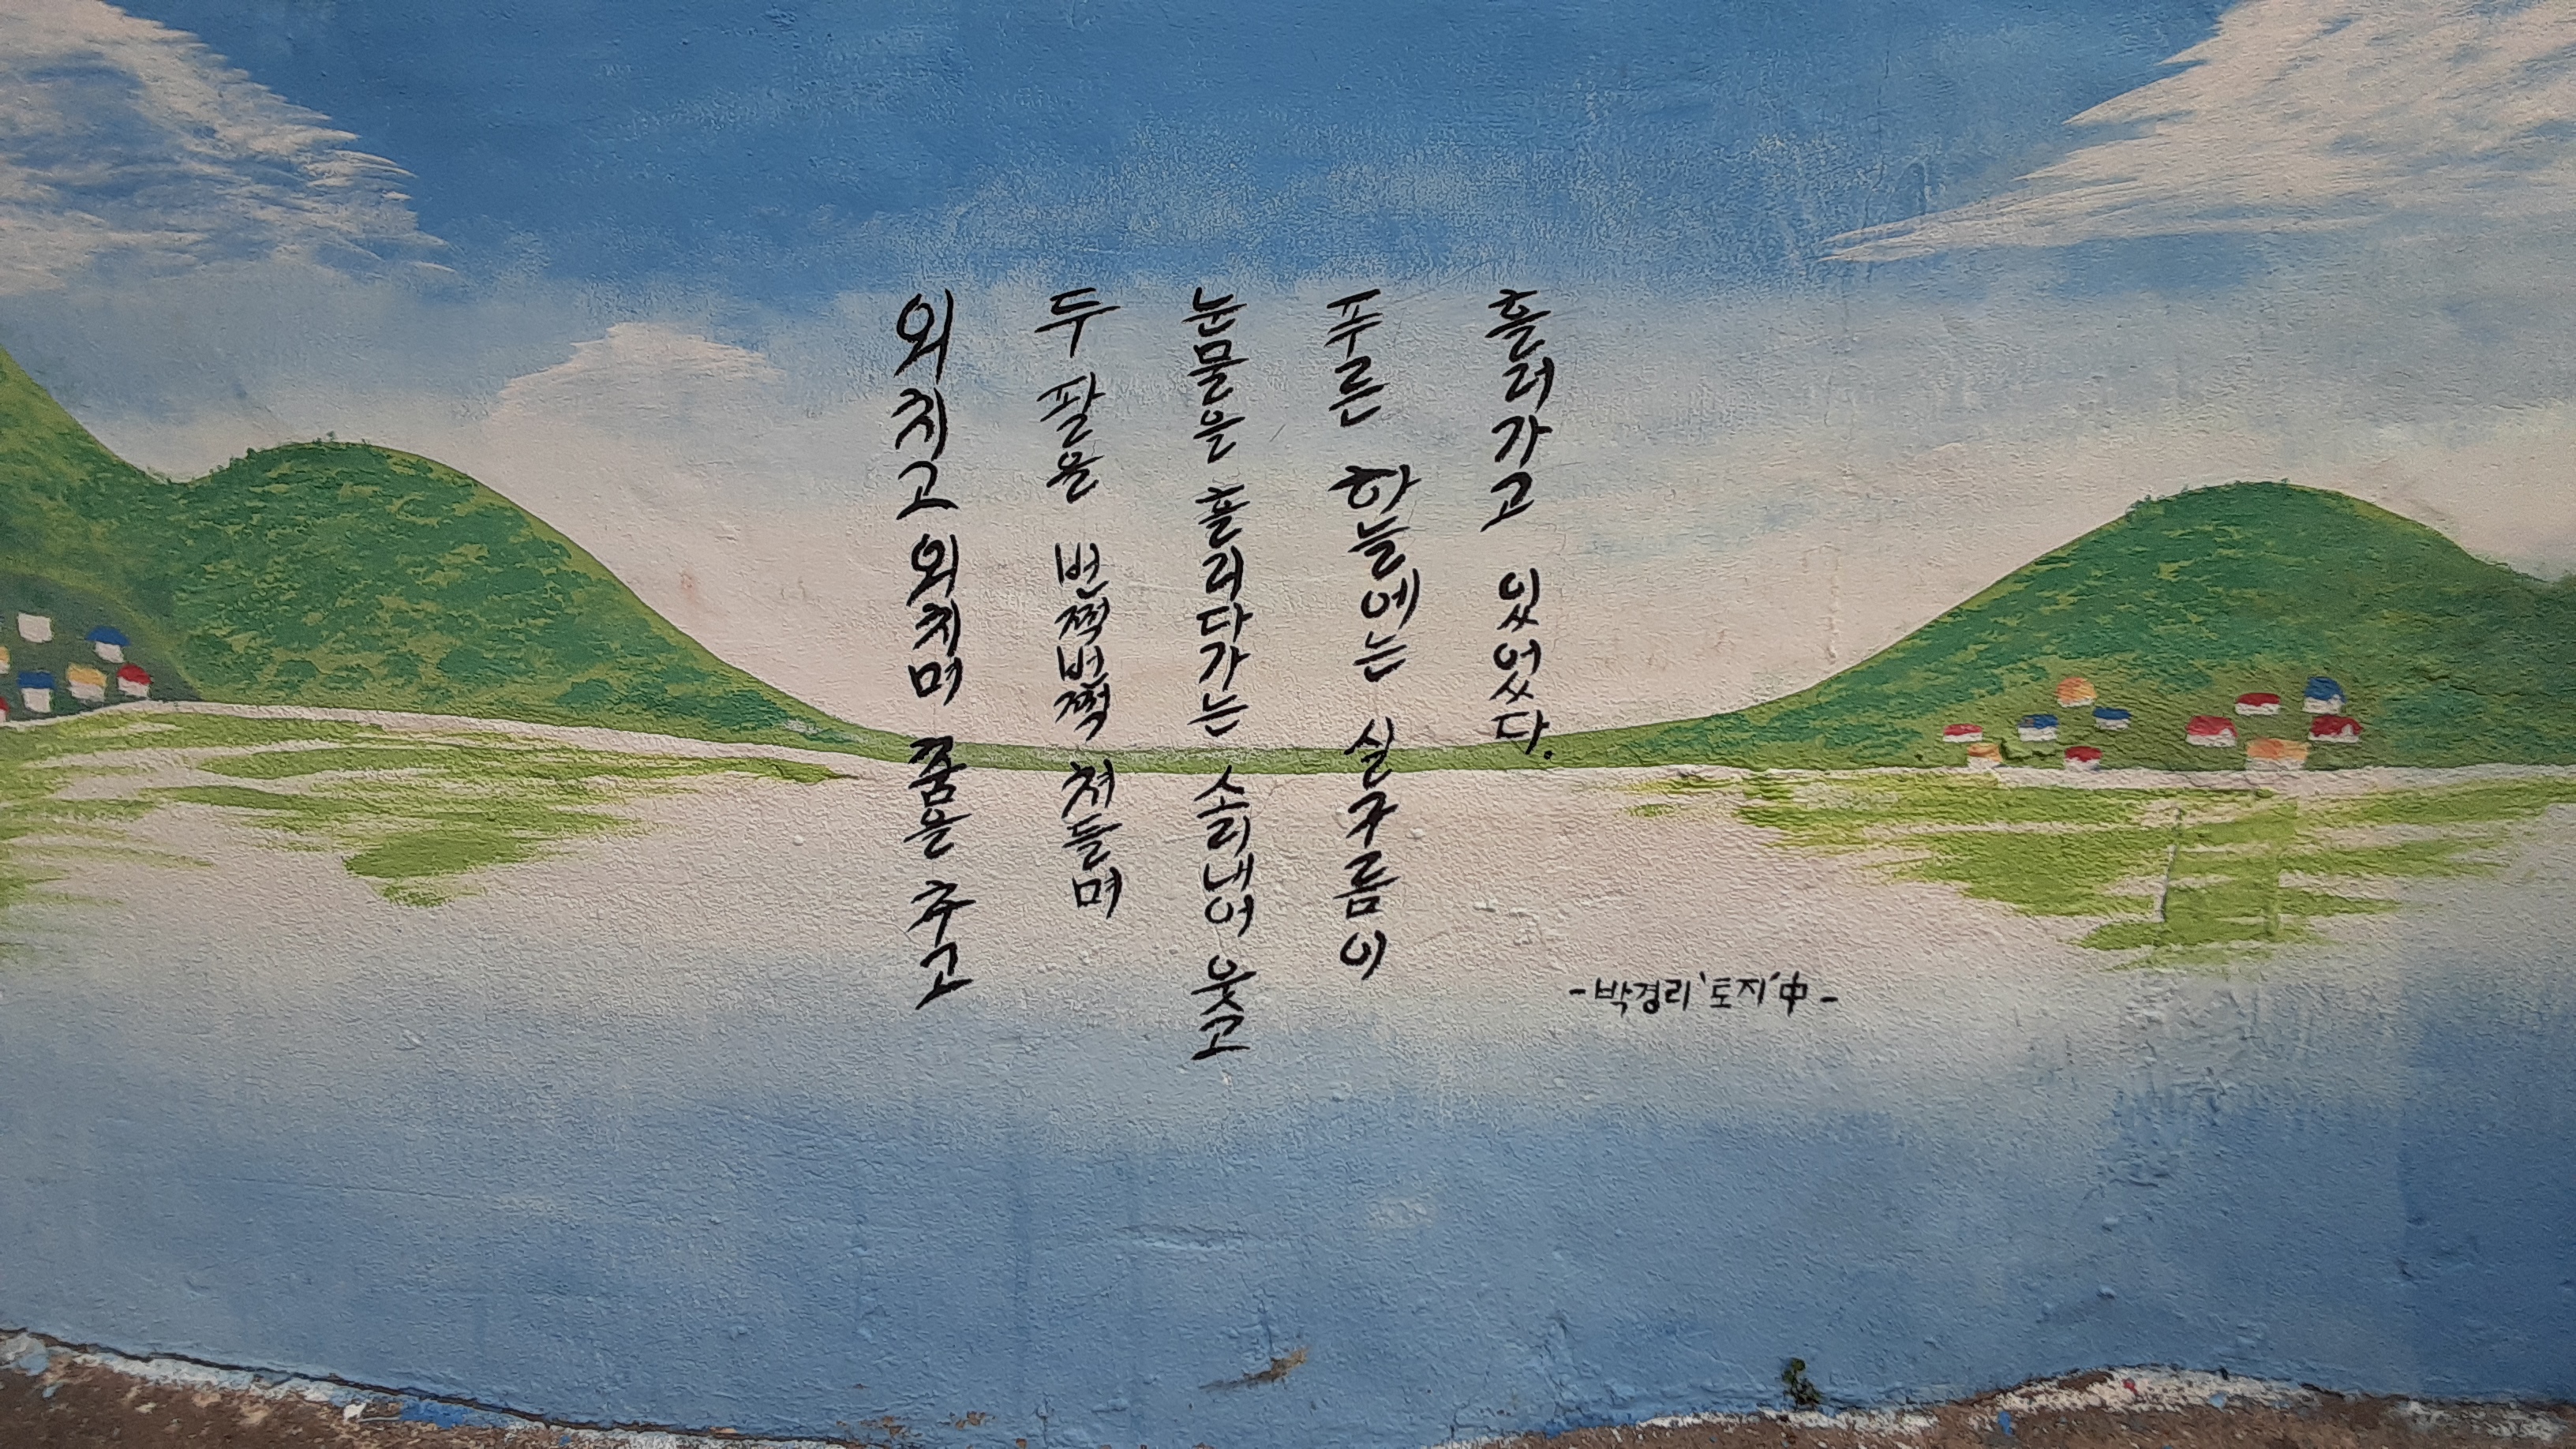 외치고 외치며 춤을 추고
두 팔을 번쩍번쩍 쳐들며
눈물을 흘리다가는 소리내어 웃고
푸른 하늘에는 실구름이
흘러가고 있었다.
-박경리 '토지' 中-